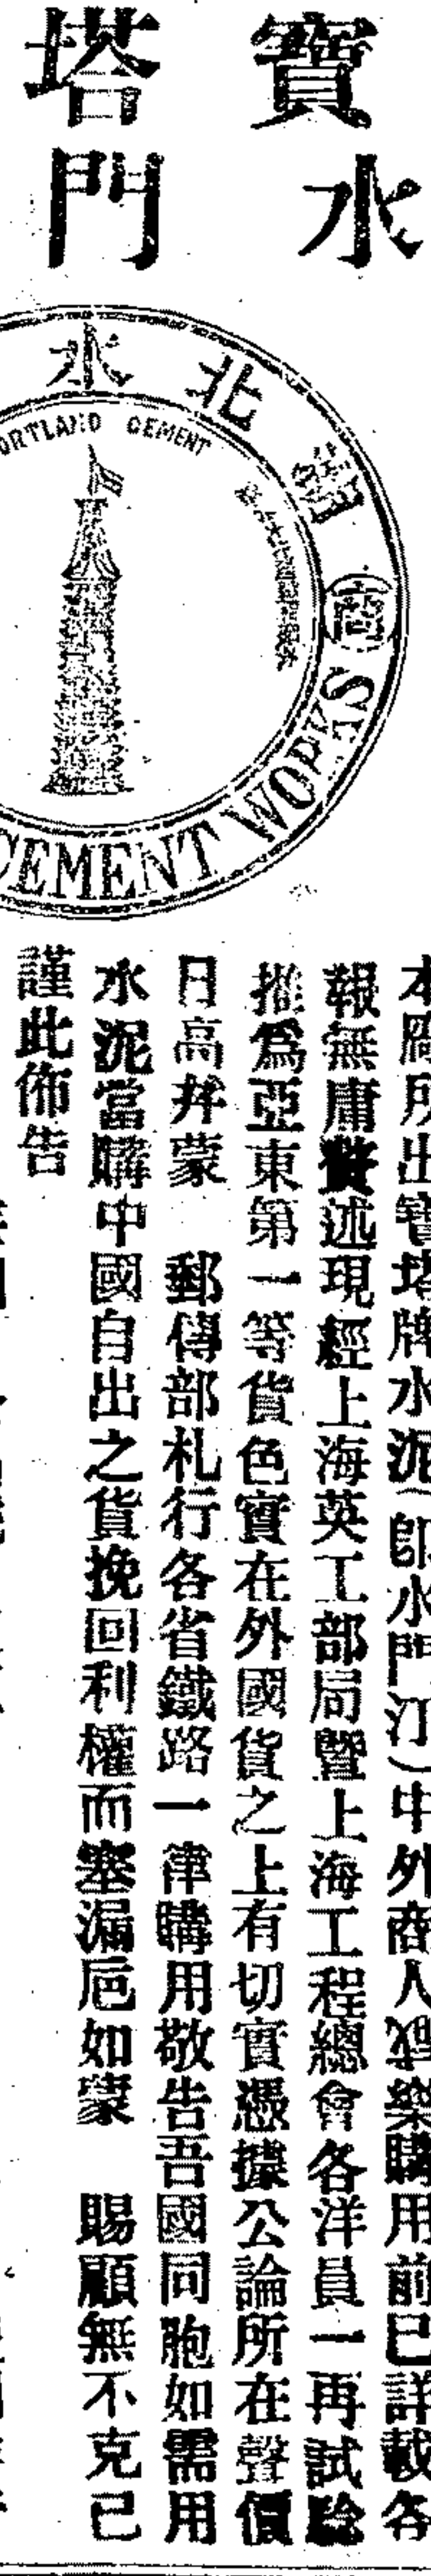 寶塔
水門
商湖北水
PORTLAND CEMENT
CEMENT WORKS
本廠所出寶塔牌水泥(即水門汀)中外商人樂購用前已詳載各
報無庸贅述現經上海英工部局暨上海工程總會各洋員一再試驗
推爲亞東第一等貨色實在外國貨之上有切實憑據公論所在聲價
日高并蒙 郵傳部札行各省鐵路一律購用敬告吾國同胞如需用
水泥當購中國自出之貨挽回利權而塞漏巵如蒙 賜顧無不克己
謹此佈告